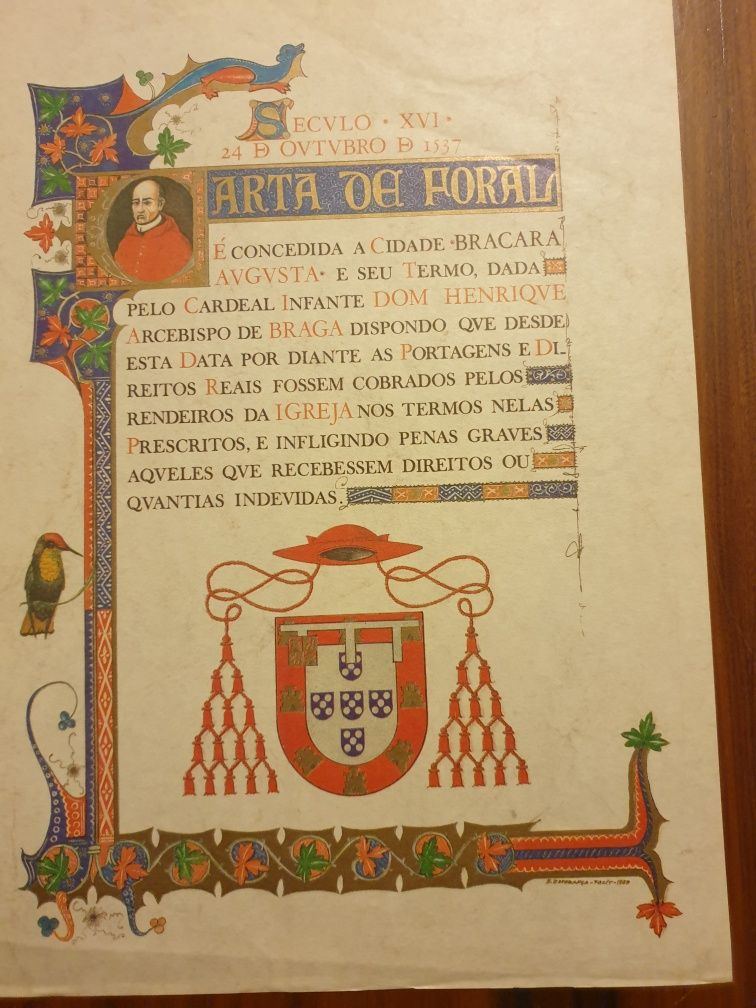 SECVLO · XVI ·
24 D OVTVBRO D 1537
CARTA DE FORAL
É CONCEDIDA A CIDADE · BRACARA
AVGVSTA · E SEU TERMO, DADA
PELO CARDEAL INFANTE DOM HENRIQVE
ARCEBISPO DE BRAGA DISPONDO QVE DESDE
ESTA DATA POR DIANTE AS PORTAGENS E DI-
REITOS REAIS FOSSEM COBRADOS PELOS
RENDEIROS DA IGREJA NOS TERMOS NELAS
PRESCRITOS, E INFLIGINDO PENAS GRAVES
AQVELES QVE RECEBESSEM DIREITOS OU
QVANTIAS INDEVIDAS.